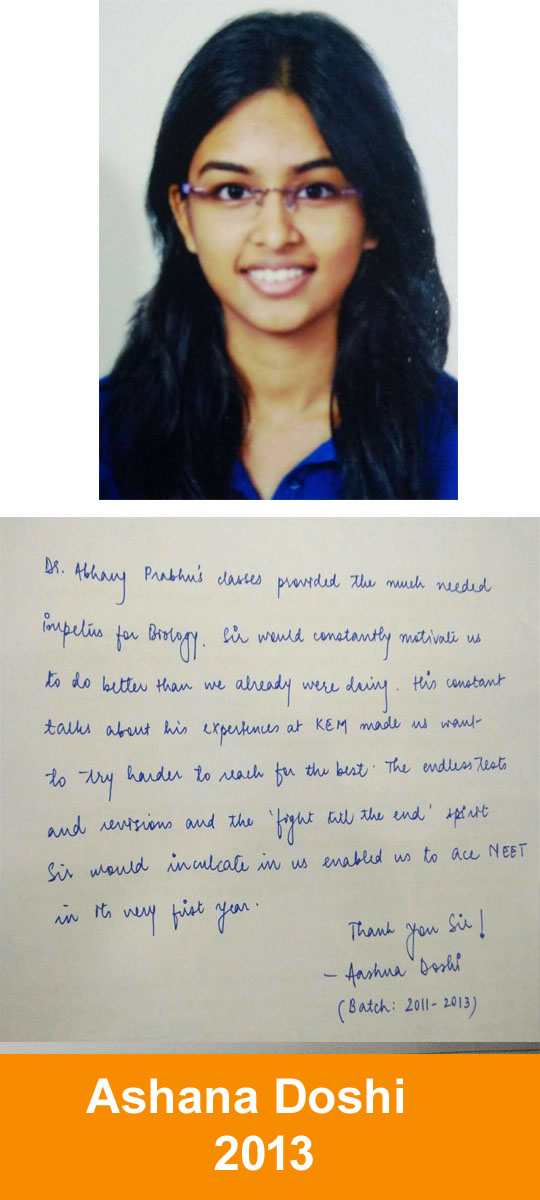 Dr. Abhay Prabhu's classes provided the much needed
impetus for Biology. Sir would constantly motivate us
to do better than we already were doing. His constant
talks about his experiences at KEM made us want
to try harder to reach for the best. The endless tests
and revisions and the 'fight till the end' spirit
Sir would inculcate in us enabled us to ace NEET
in its very first year.
Thank you Sir!
- Aashna Doshi
(Batch: 2011-2013)
Ashana Doshi
2013